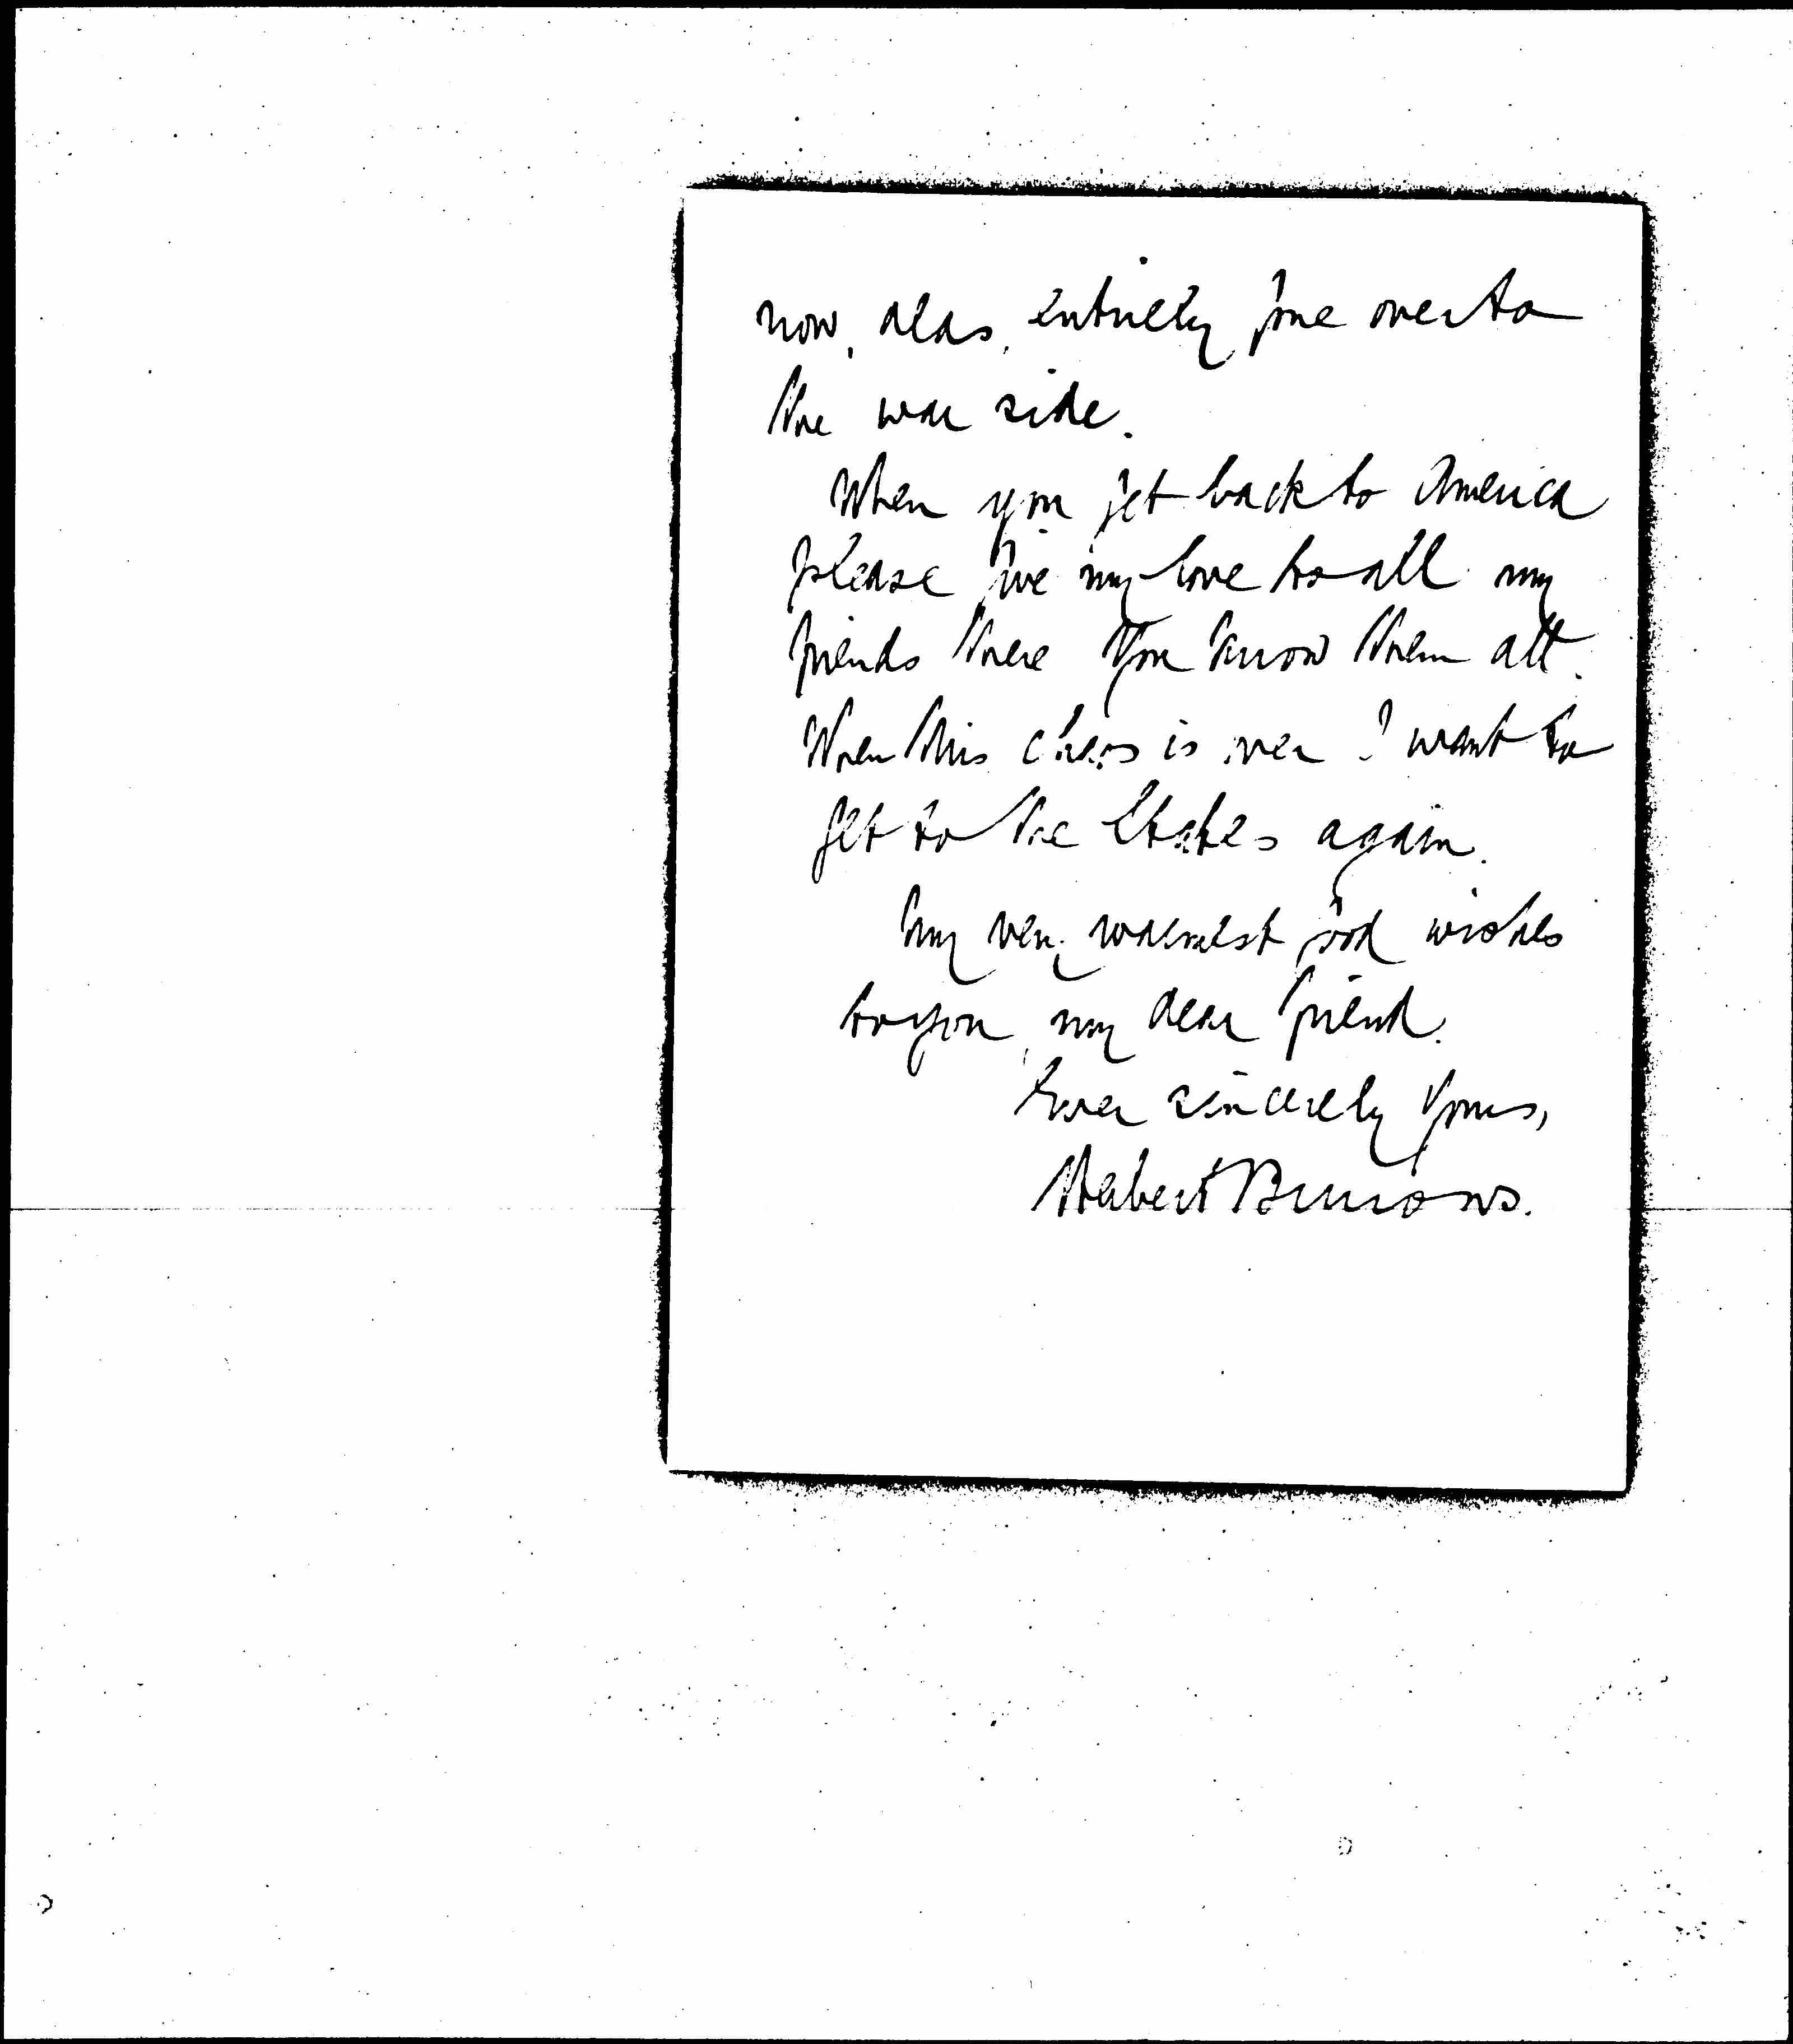 now, alas, entirely gone over to
the war side.
When you get back to America
please give my love to all my
friends there You know them all.
When this chaos is over I want to
get to the States again.
My very warmest good wishes
to you, my dear friend.
Ever sincerely Yours,
Herbert Burrows.